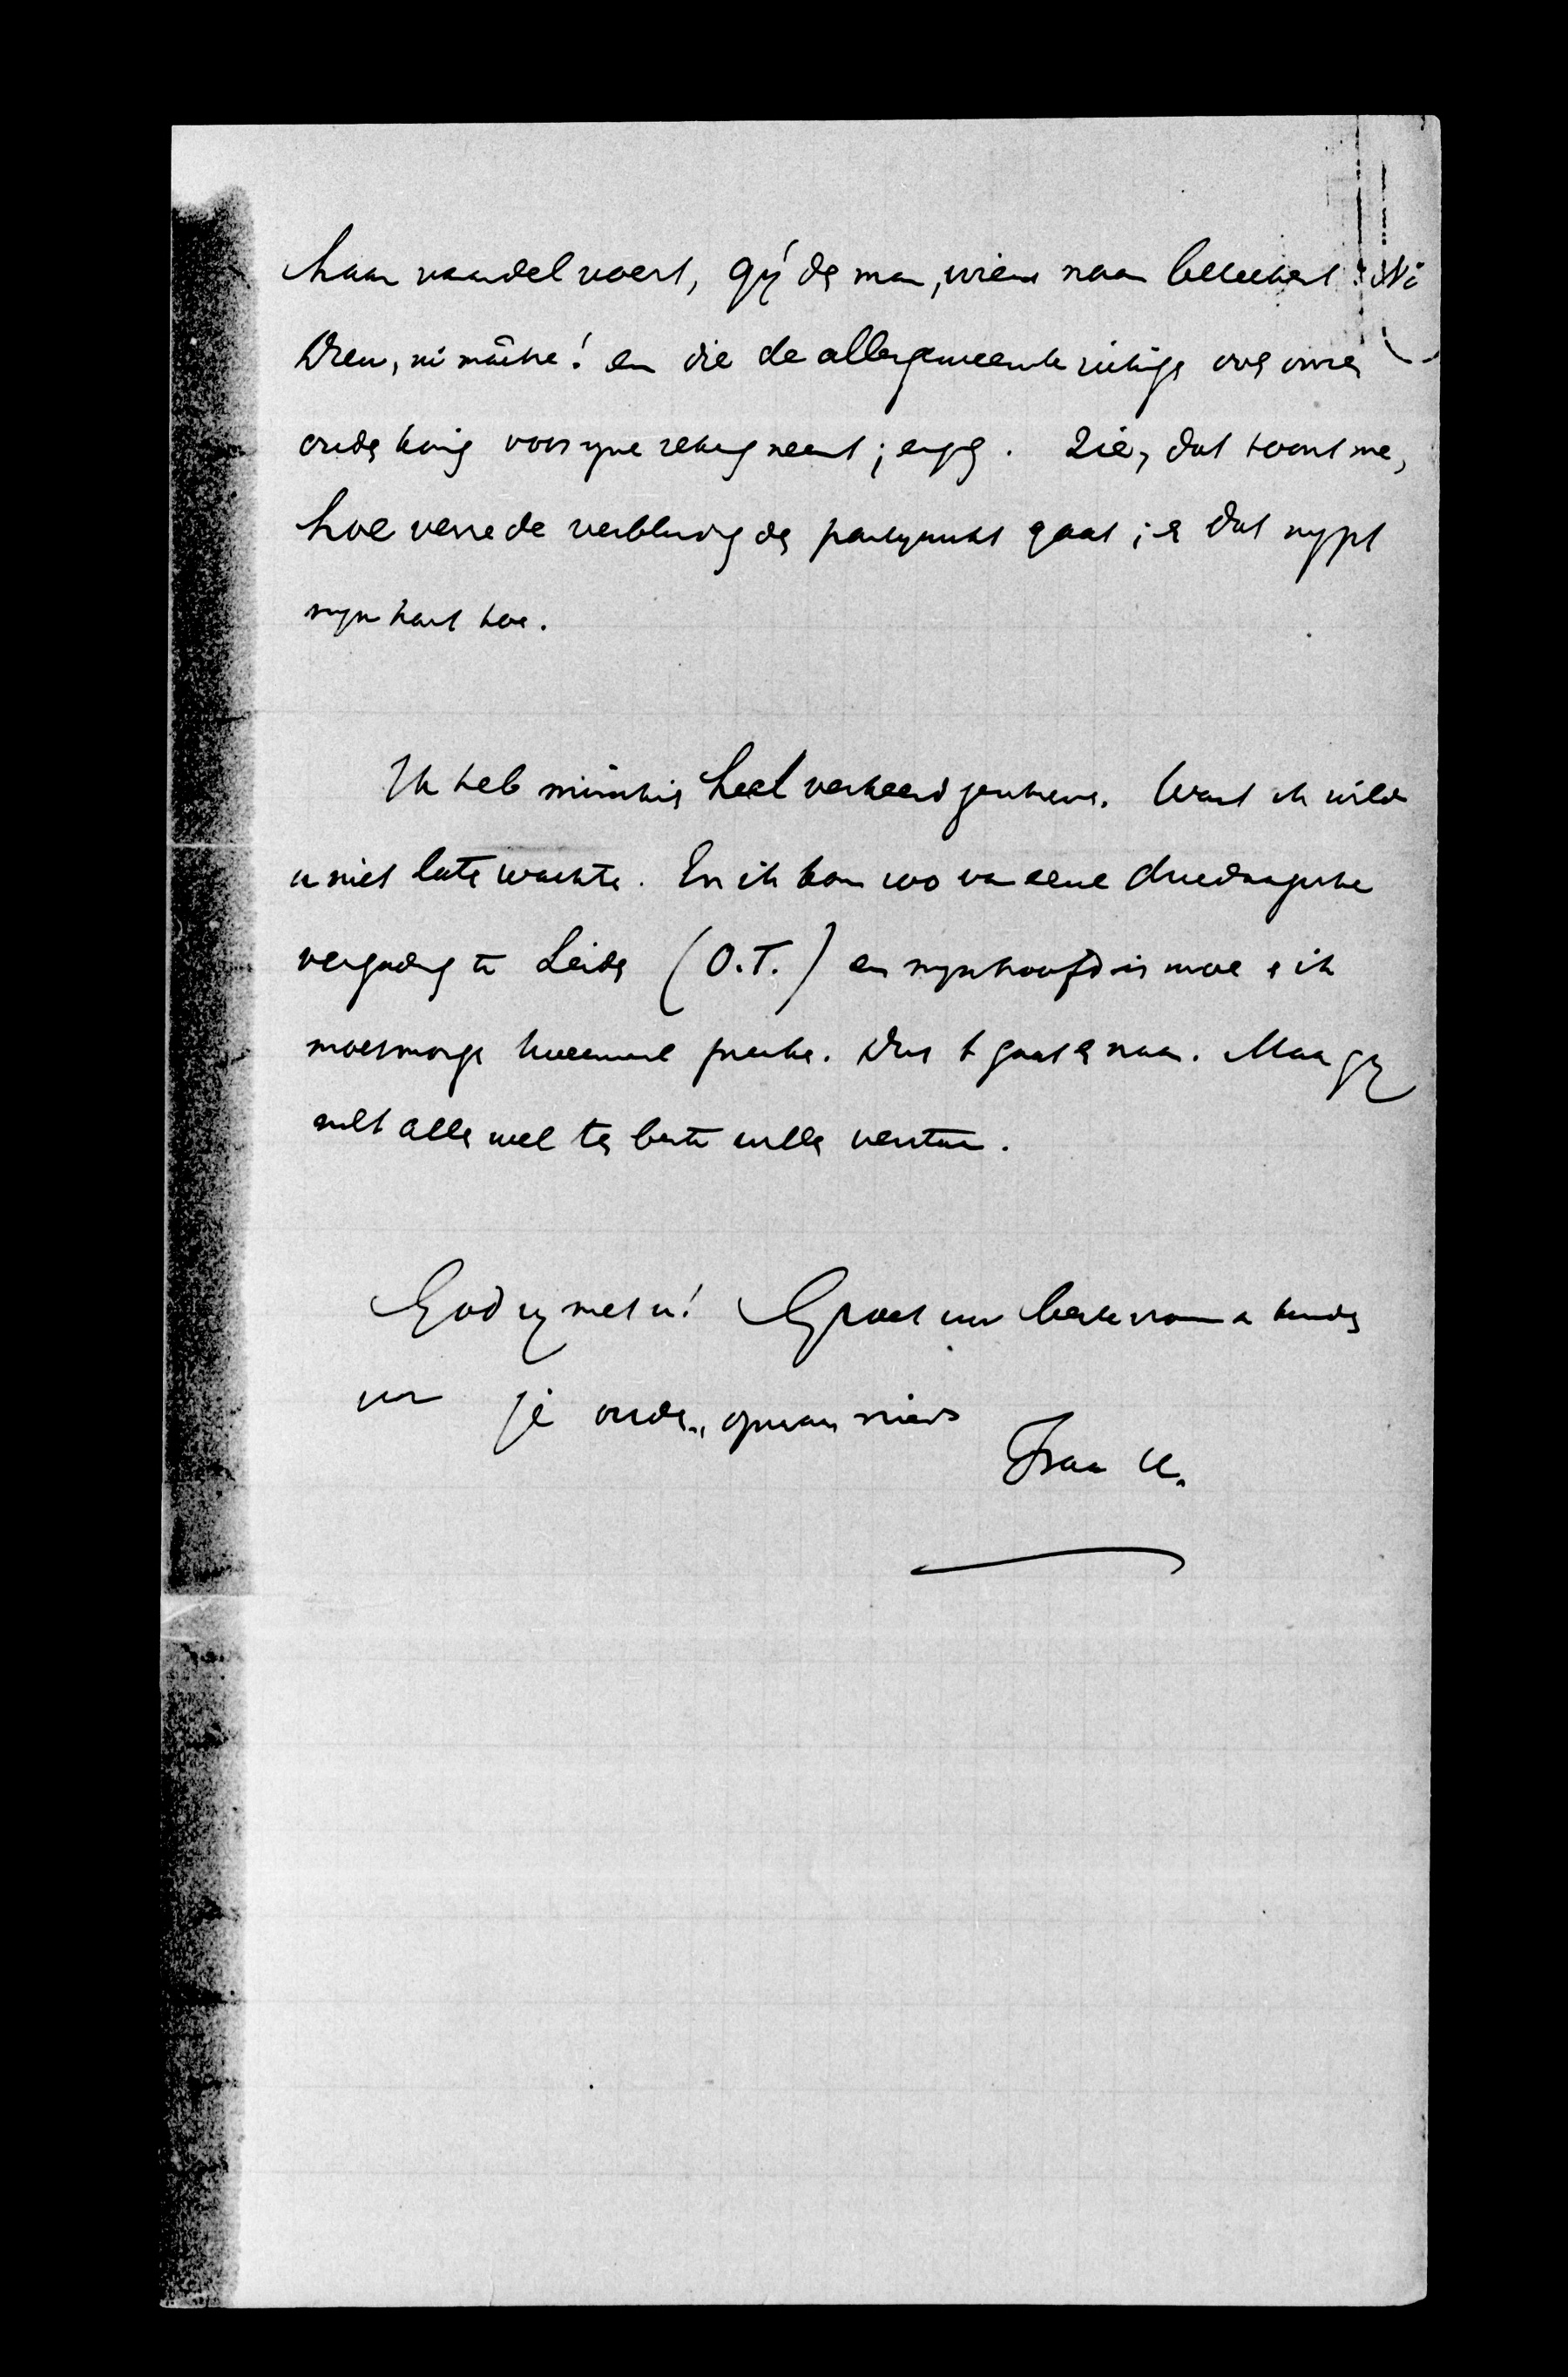 haar vaandel voert, gij de man, wiens naam beteekent: Ni
Dieu, ni maître! en die de allergemeenste over onzen
oude koning voor zijne rekening neemt; enz. Zie, dat toont me,
hoe verre de verblinding der partyzucht gaat; en dat nypt
myn hart toe.
Ik heb misschien heel verkeerd geschreven. Want ik wilde
u niet laten wachten. En ik kom zoo van eene driedaagsche
vergadering te Leiden (O.T.) en myn hoofd is moe en ik
moet morgen tweemaal preeken. Dus 't gaat er naar. Maar gy
zult alles wel ten beste willen verstaan.
God zy met u! Groet uw beste vrouw en kinderen
van je ouden,